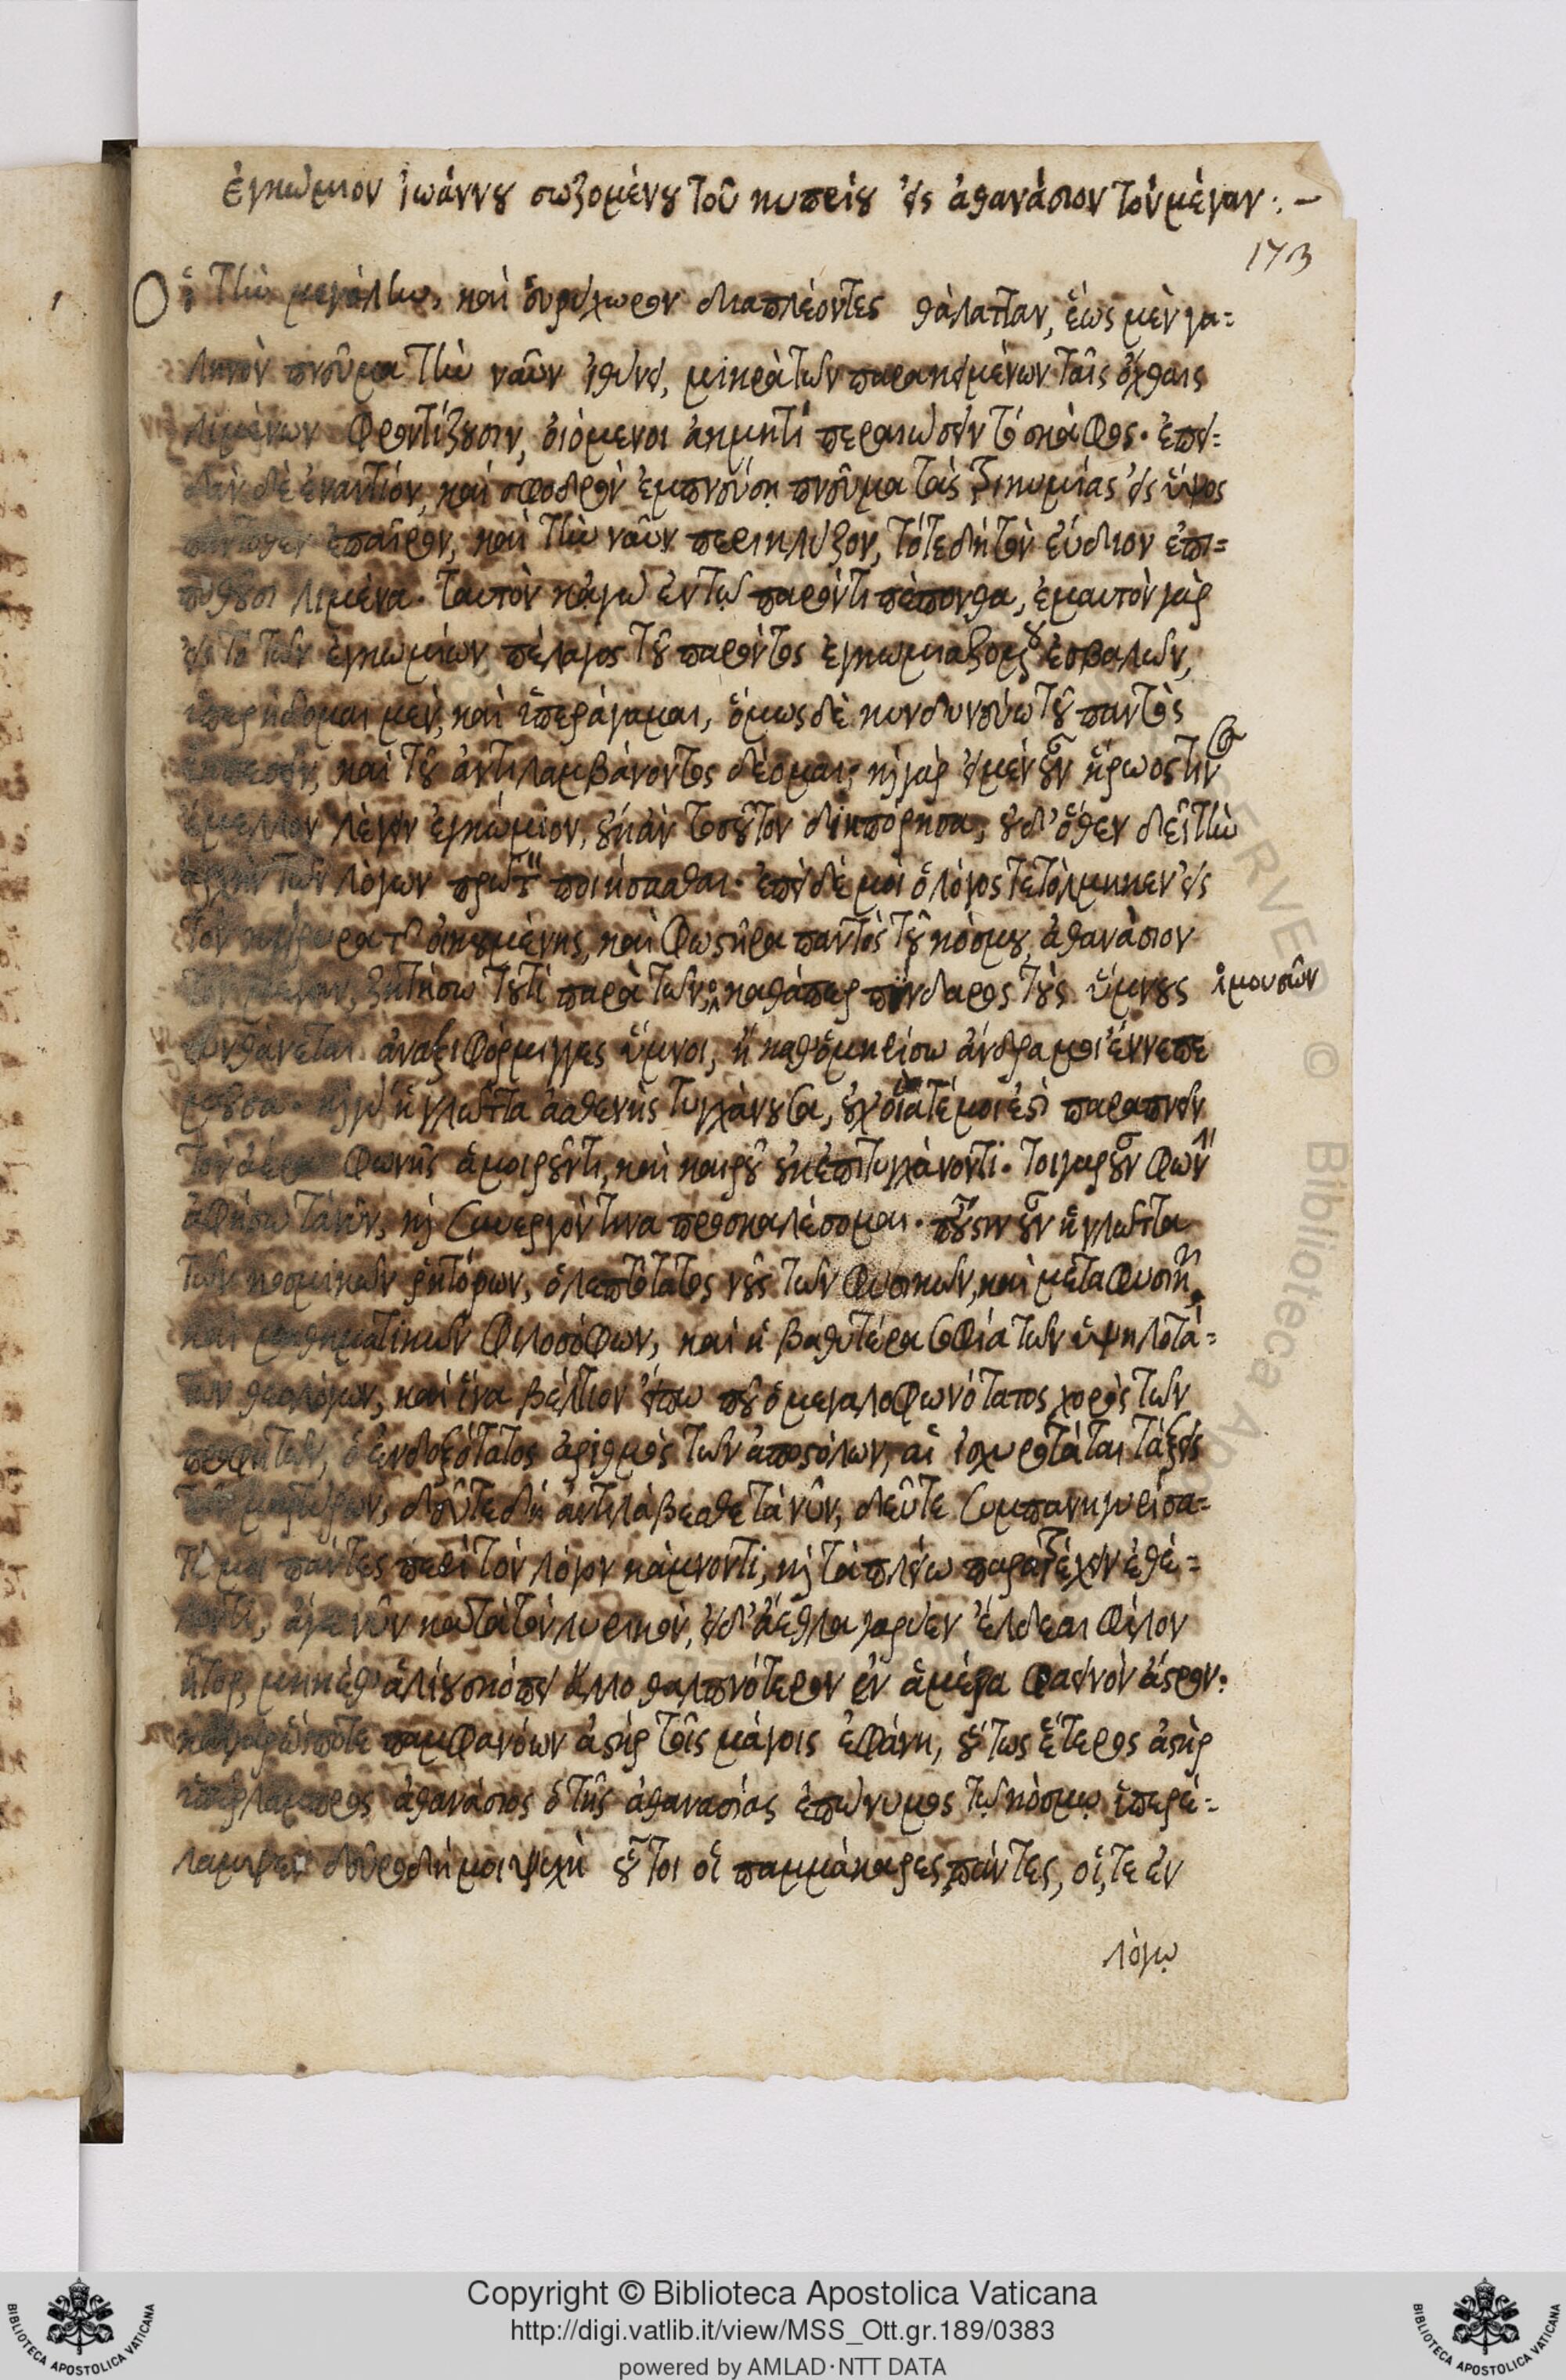 ἐγκώμιον ἰωάννου σωζομένου τοῦ κυπρίου εἰς ἀθανάσιον τὸν μέγαν :~
173
Οἱ τὴν μεγάλην, καὶ εὐρύχωρον διαπλέοντες θάλατταν, ἕως μὲν γα=
ληνὸν πνεῦμα τὴν ναῦν ἰθύνει, μικρὰ τῶν παρακειμένων ταῖς ὄχθαις
λιμένων φροντίζουσιν, οἰόμενοι ἀκμητὶ περαιώσειν τὸ σκάφος· ἐπει=
δὰν δὲ ἐναντίον, καὶ σφοδρὸν ἐμπνεύση πνεῦμα τὰς τρικυμίας εἰς ὕψος
πάντοθεν ἐπαῖρον, καὶ τὴν ναῦν περικλύζον, τότε δὴ τὸν εὔδιον ἐπι=
ποθοῦσι λιμένα. ταυτὸν κἀγὼ ἐν τῷ παρόντι πέπονθα, ἐμαυτὸν γὰρ
εἰς τὸ τῶν ἐγκωμίων πέλαγος τοῦ παρόντος ἐγκωμιαζομένου ἐσβαλών,
ὑπερήδομαι μὲν, καὶ ὑπεράγαμαι, ὅμως δὲ κινδυνεύω τοῦ παντὸς
καὶ τοῦ ἀντιλαμβάνοντος δέομαι, καὶ γὰρ εἰ μὲν οὖν ἥρωος τινὸς
ἔμελλον λέγειν ἐγκώμιον, οὐκ ἂν τοσοῦτον διηπόρησα, οὐδ' ὅθεν δεῖ τὴν
ἀρχὴν τῶν λόγων πρῶτον ποιήσασθαι· ἐπεὶ δέ μοι ὁ λόγος τετόλμηκεν εἰς
τὸν κήρυκα τῆς οἰκουμένης, καὶ φωστῆρα παντὸς τοῦ κόσμου, ἀθανάσιον
τὸν μέγαν, ζητήσω τουτὶ παρὰ τῶν καθάπερ πίνδαρος τοὺς ὕμνους
μουσῶν
πυνθάνεται ἀναξιφόρμιγγες ὕμνοι, ἢ καθ' ὁμηρίσω ἄνδρα μοι ἔννεπε
μοῦσα. ἡ γλῶττα ἀσθενὴς τυγχάνουσα, οὐχ οἵα τέ μοι ἐστὶ παραπνεῖν
τὸν ἀέρα φωνῆς ἀμοιροῦντι, καὶ καιροῦ οὐκ ἐπιτυγχάνοντι. τοιγαροῦν φωνὴν
ἀφήσω τανῦν, καὶ συνεργόν τινα προσκαλέσομαι. ποῦ ἐστιν οὖν ἡ γλῶττα
τῶν κοσμικῶν ῥητόρων, ὁ λεπτότατος νοῦς τῶν φυσικῶν, καὶ μεταφυσικῶν,
καὶ μαθηματικῶν φιλοσόφων, καὶ ἡ βαθυτέρα σοφία τῶν ὑψηλοτά=
των θεολόγων, καὶ ἵνα βέλτιον εἴπω ποῦ ὁ μεγαλοφωνότατος χορὸς τῶν
προφητῶν, ὁ ἐνδοξότατος ἀριθμὸς τῶν ἀποστόλων, αἱ ἰσχυρόταται τάξεις
τῶν μαρτύρων, δεῦτε δὴ ἀντιλάβεσθε τὰ νῦν, δεῦτε συμπανηγυρίσα=
τέ μοι πάντες περὶ τὸν λόγον κάμνοντι, καὶ τὰ πλείω παρατρέχειν ἐθέ=
λοντι, ἄγε νῦν κατὰ τὸν λυρικὸν, εἰ δ' ἄεθλα γαρύεν ἔλδεαι φίλον
ἦτορ, μηκέθ' ἁλίου σκόπει ἄλλο θαλπνότερον ἐν ἁμέρα φαεινὸν ἄστρον·
παμφανόων ἀστὴρ τοῖς μάγοις ἐφάνη, οὕτως ἕτερος ἀστὴρ
ὑπέρλαμπρος ἀθανάσιος ὁ τῆς ἀθανασίας ἐπώνυμος τῷ κόσμῳ ὑπερέ=
λαμψεν δεῦρο δή μοι ψυχὴ οὗτοι οἱ παμμάκαρες πάντες, οἵ, τε ἐν
λόγῳ
Copyright © Biblioteca Apostolica Vaticana
http://digi.vatlib.it/view/MSS_Ott.gr.189/0383
powered by AMLAD·NTT DATA
BIBLIOTECA APOSTOLICA VATICANA
BIBLIOTECA APOSTOLICA VATICANA